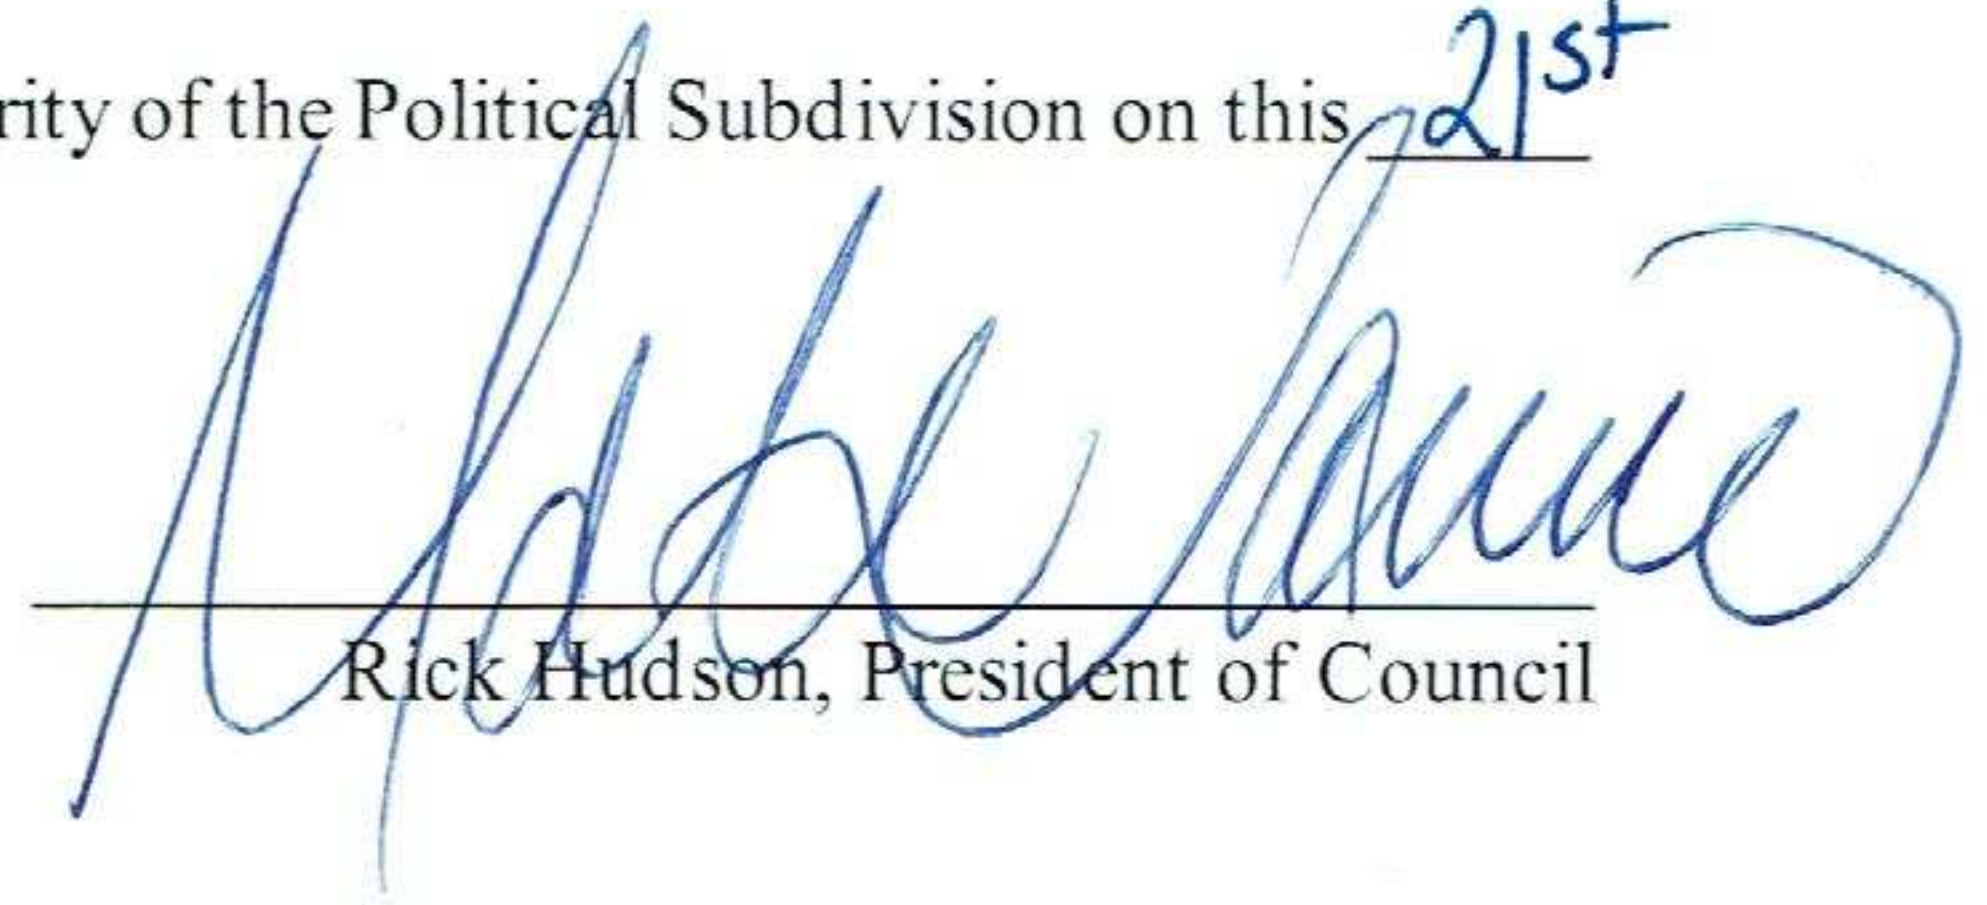 rity of the Political Subdivision on this 21st
Rick Hudson, President of Council